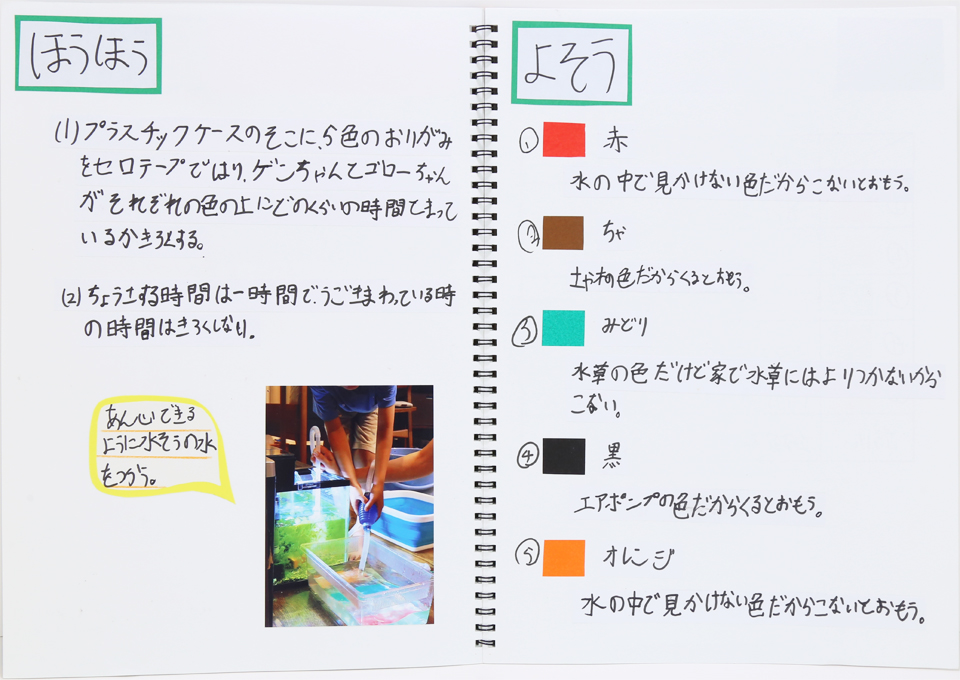 ほうほう
(1)プラスチックケースのそこに、5色のおりがみ
をセロテープではり、ゲンちゃんとゴローちゃん
がそれぞれの色の上にどのくらいの時間とまって
いるかきろくする。
(2)ちょうさする時間は一時間で、うごきまわっている時
の時間はきろくしない。
あん心できる
ように水そうの水
をつかう。
よそう
① 赤
水の中で見かけない色だからこないとおもう。
② ちゃ
土やわの色だからくるとおもう。
③ みどり
水草の色だけど家で水草にはよりつかないから
こない。
④ 黒
エアポンプの色だからくるとおもう。
⑤ オレンジ
水の中で見かけない色だからこないとおもう。